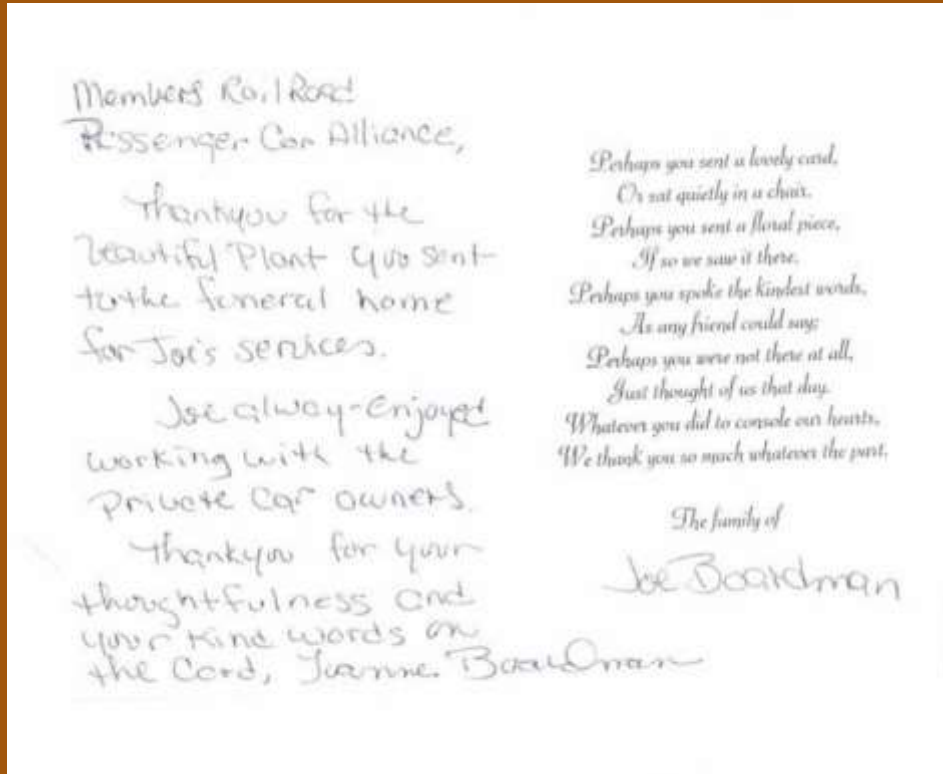 Members RailRoad
Passenger Car Alliance,
Thankyou for the
beautiful Plant you sent
to the funeral home
for Joe's services.
Joe alway-Enjoyed
working with the
Private Car owners.
Thankyou for your
thoughtfulness and
your kind words on
the Card, Joanne Boardman
Perhaps you sent a lovely card,
Or sat quietly in a chair.
Perhaps you sent a floral piece,
If so we saw it there.
Perhaps you spoke the kindest words,
As any friend could say;
Perhaps you were not there at all,
Just thought of us that day.
Whatever you did to console our hearts,
We thank you so much whatever the part.
The family of
Joe Boardman